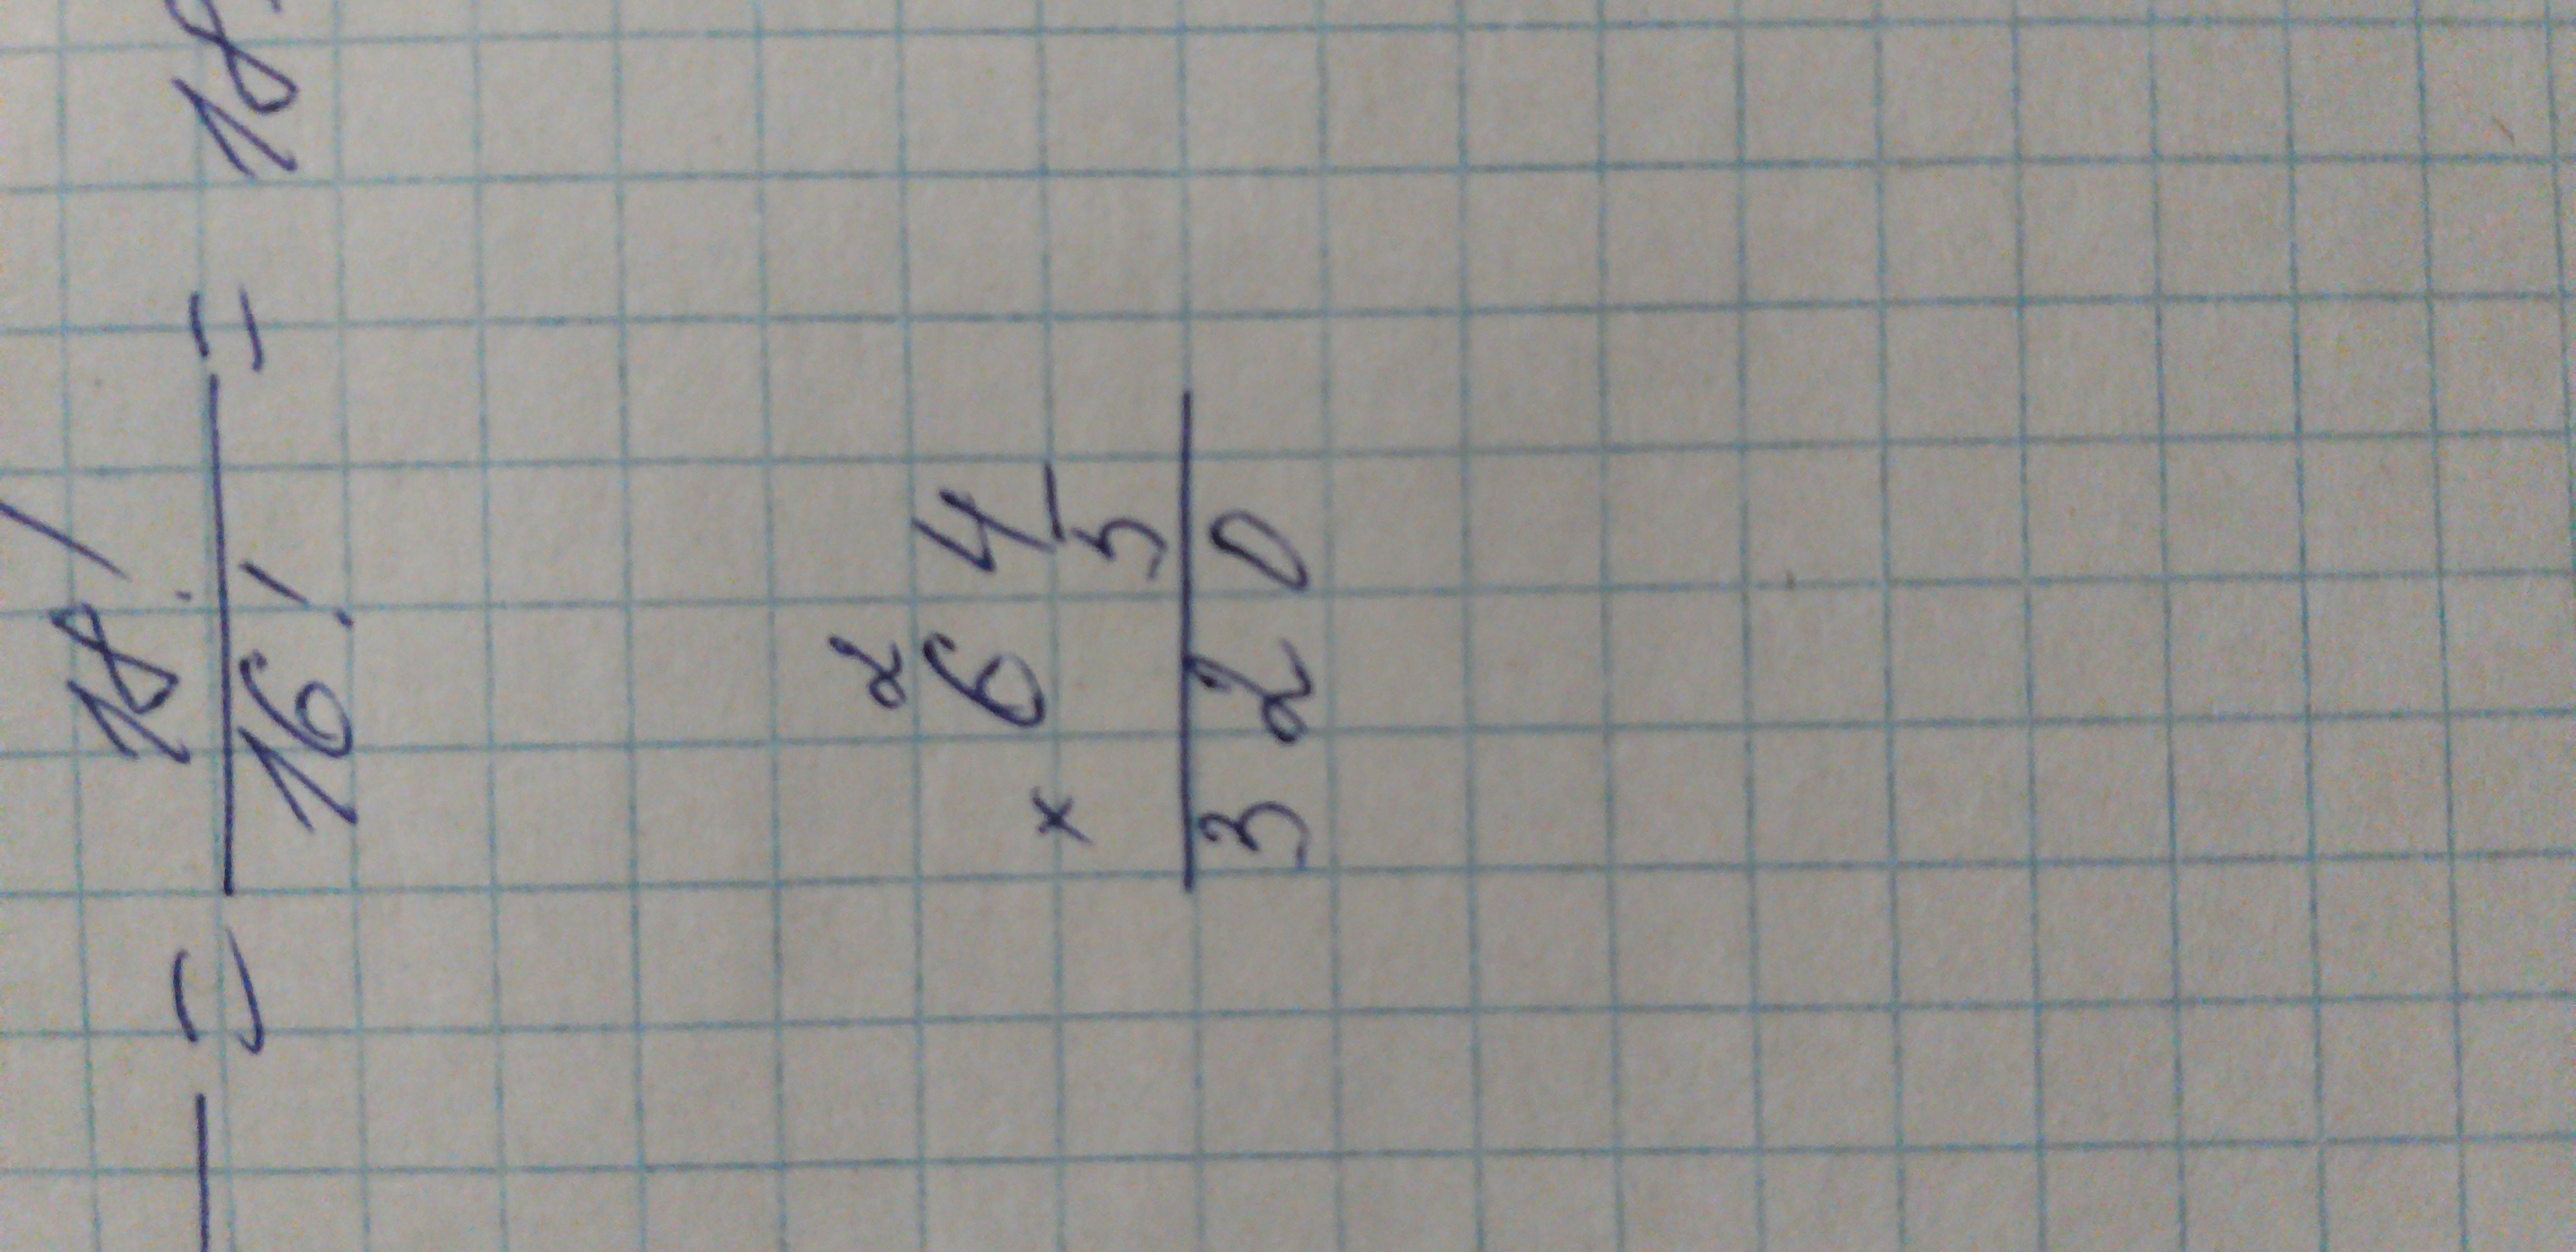 = 18! / 16! = 18
2
64
× 5
320